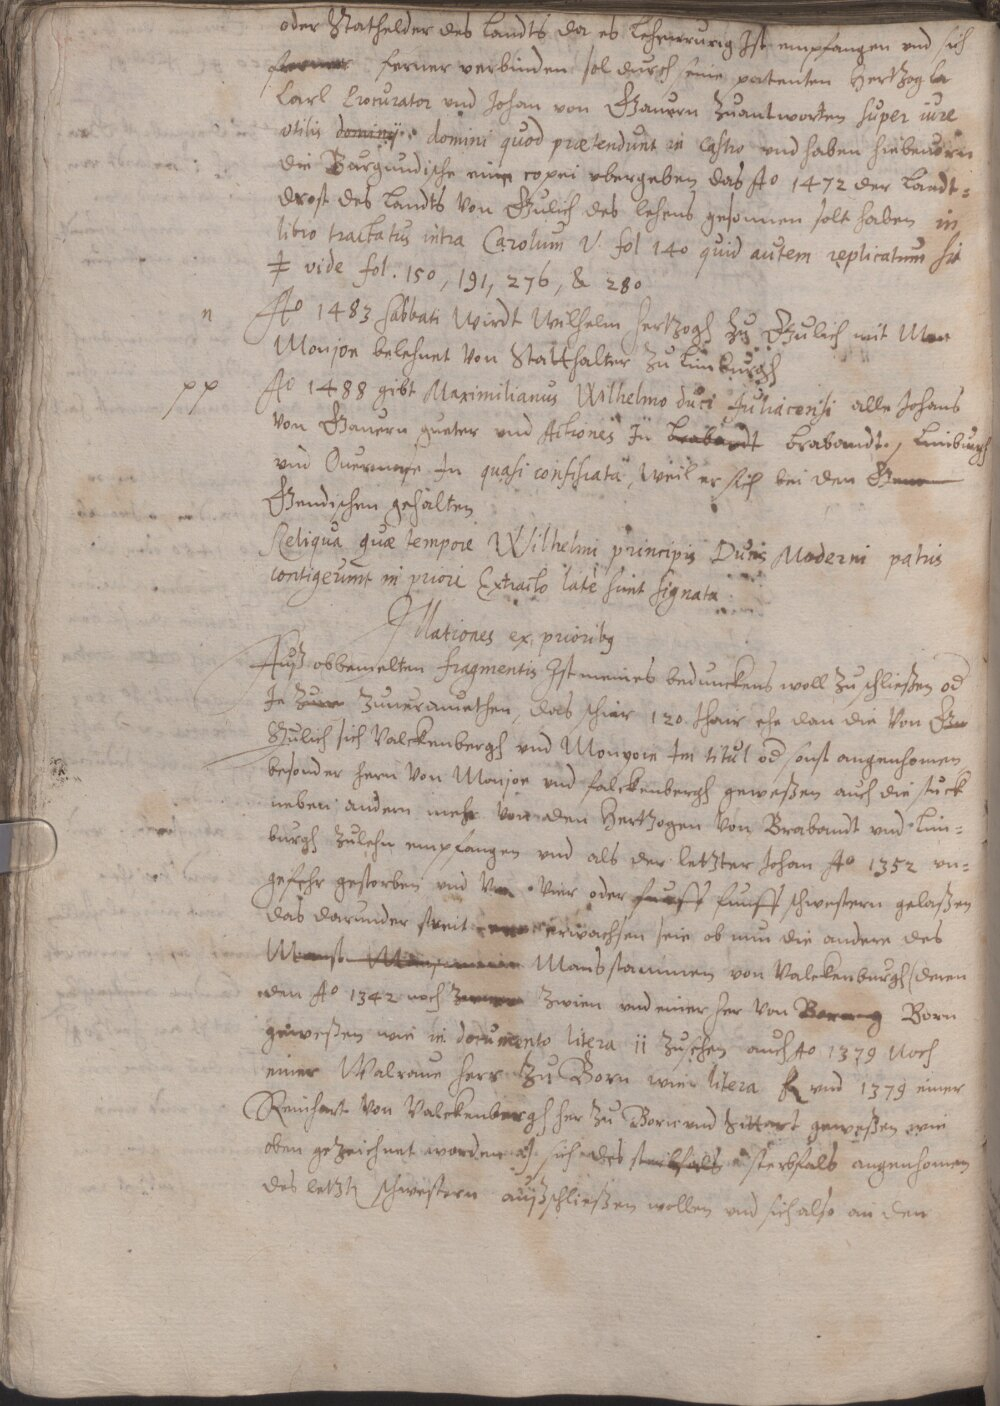 oder Stathelder des Landts da es Lehnrurig Ist empfangen vnd sich
ferner ferner verbinden sol durch seine patenten Hertzog
Carl Procurator vnd Johan von Gauern zuantworten super iure
vtilis dominij domini quod prætendunt in Castro vnd haben hiebeuorn
die Burgundische eine copei vbergeben das Aº 1472 der Landt=
drost des Landts von Gulich des lehens gesonnen solt haben in
libro tractatus intra Carolum V. fol 140 quid autem replicatum sit
vide fol. 150, 191, 276, & 280
n Aº 1483 sabbati Wirdt Wilhelm Hertzogh zu Gulich mit
Monjoe belehnet von Statthalter zu Limburgh
pp Aº 1488 gibt Maximilianus Wilhelmo duci Juliacensi alle Johans
von Gauern gueter vnd Actiones In brabandt brabandt, Limburgh
vnd Ouermase In quasi confiscata, weil er sich bei den
Gendischen gehalten
Reliqua quæ tempore Wilhelmi principis Ducis Moderni patris
contigerunt in priori Extracto late sunt signata
Illationes ex prioribus
Auß obbemelten fragmentis Ist meines bedunckens woll zu schließen od
Je zuuermuethen, das schier 120 Jhair ehe dan die von
Gulich sich Valckenbergh vnd Monyoie Im titul od sonst angenhomen
besonder hern von Monjoe vnd falckenbergh geweßen auch die stuck
neben andern mehr von den Hertzogen von Brabandt vnd Lim=
burgh zulehn empfangen vnd als der letzter Johan Aº 1352 vn=
gefehr gestorben vnd vier oder funff funff schwestern gelaßen
das darunder streit erwachsen seie ob nun die andere des
Mansstammen von Valckenburgh (deren
den Aº 1342 noch zwien vnd einer her von Born
geweßen wie in documento litera ii zusehen auch Aº 1379 noch
einer Walraue herr zu Born wie litera R vnd 1379 einer
Reinhart von Valckenbergh her zu Born vnd Sittart geweßen wie
oben gezeichnet worden sich des sterbfals sterbfals angenhomen
des letzt schwestern außschließen wollen vnd sich also an den